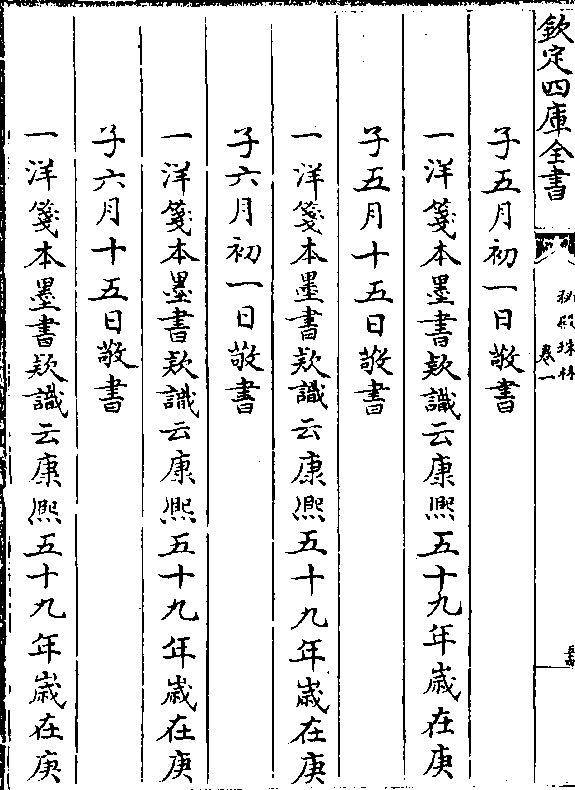 欽定四庫全書
秘殿珠林
卷一
子五月初一日敬書
一洋箋本墨書款識云康熙五十九年歲在庚
子五月十五日敬書
一洋箋本墨書款識云康熙五十九年歲在庚
子六月初一日敬書
一洋箋本墨書款識云康熙五十九年歲在庚
子六月十五日敬書
一洋箋本墨書款識云康熙五十九年歲在庚